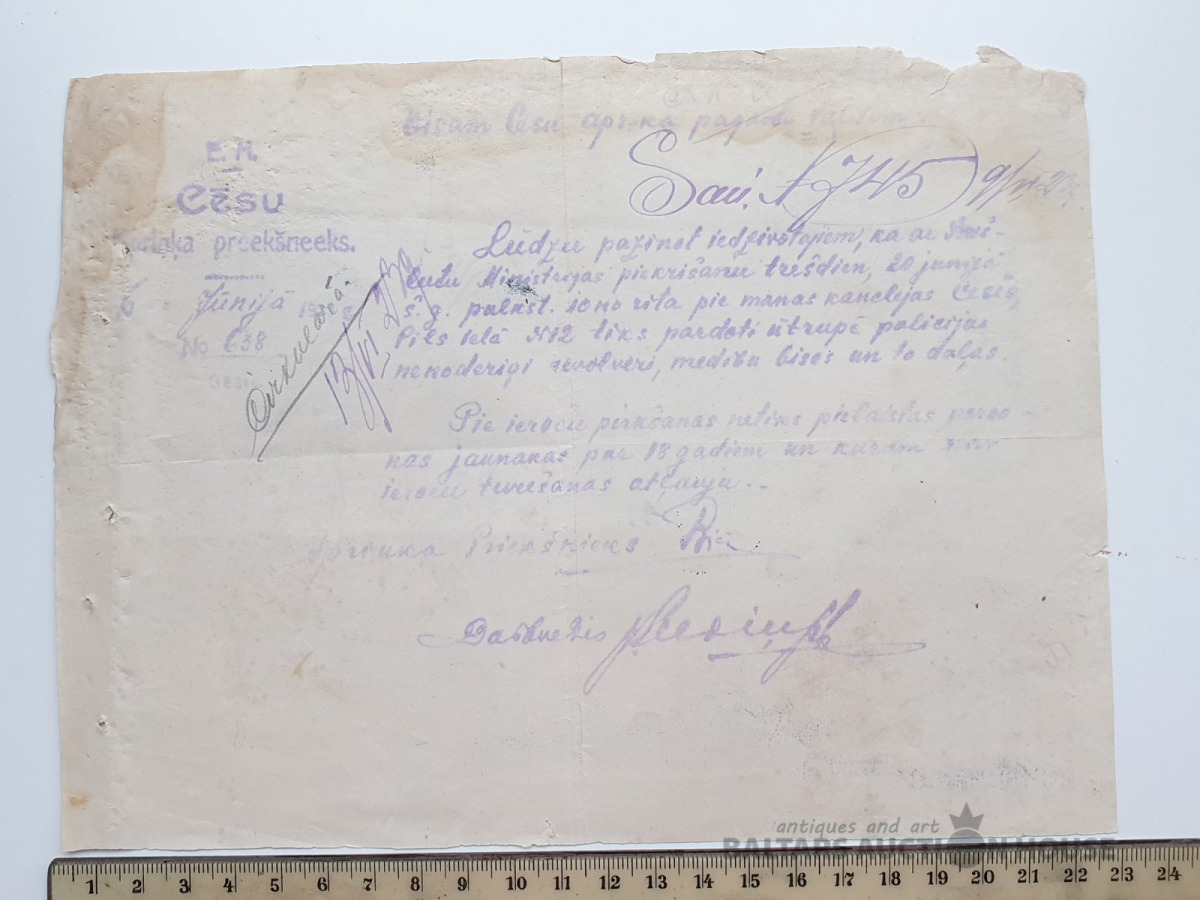 Visam Cēsu apr-ķa pagastu
E. M.
Cēsu
preekšneeks.
Jūnijā 192
No 638
Cirkulēšā.
San. № 745 9/VI 23
Lūdzu paziņot iedzīvotājiem, ka ar Iekš-
lietu Ministrijas piekrišanu trešdien, 20 jūnijā
š. g. pulkst. 10 no rīta pie manas kancelejas Cēsīs,
Pils ielā №12 tiks pārdoti ūtrupē policijai
nekoderīgi revolveri, medību bises un to daļas.
Pie ieroču pirkšanas netiks pielaistas perso-
nas jaunakas par 18 gadiem un kurām nav
ieroču turēšanas atļauju..
Apriņķa Priekšnieks
Darbvedis
antiques and art
BALTARS AUCTION HOUSE
1 2 3 4 5 6 7 8 9 10 11 12 13 14 15 16 17 18 19 20 21 22 23 24